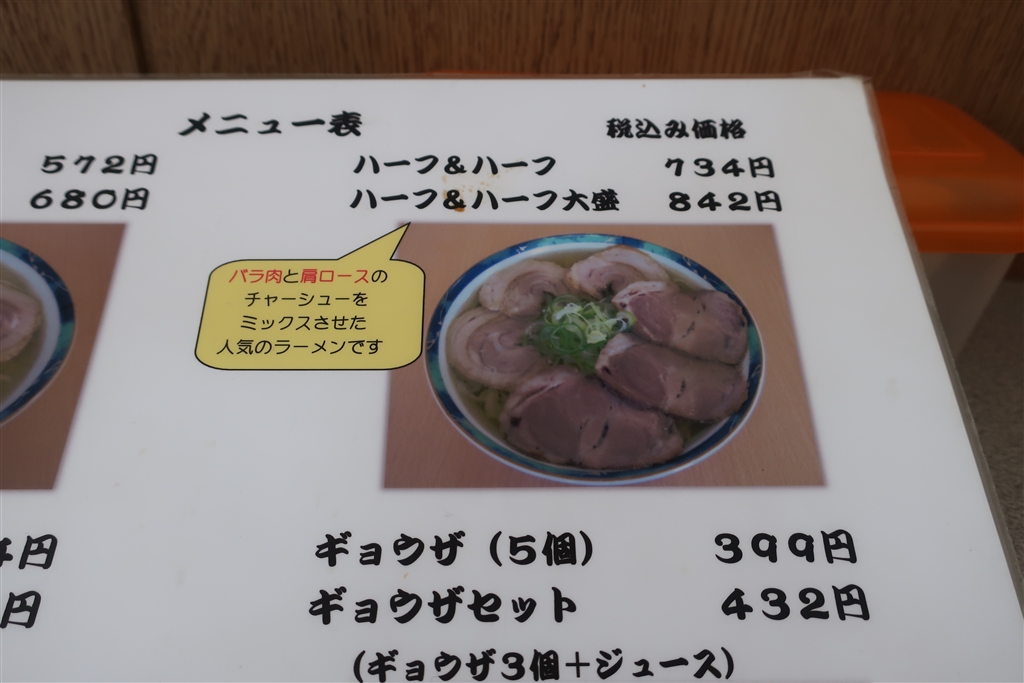 メニュー表 税込み価格
572円 ハーフ&ハーフ 734円
680円 ハーフ&ハーフ大盛 842円
バラ肉と肩ロースの
チャーシューを
ミックスさせた
人気のラーメンです
円 ギョウザ(5個) 399円
円 ギョウザセット 432円
(ギョウザ3個+ジュース)